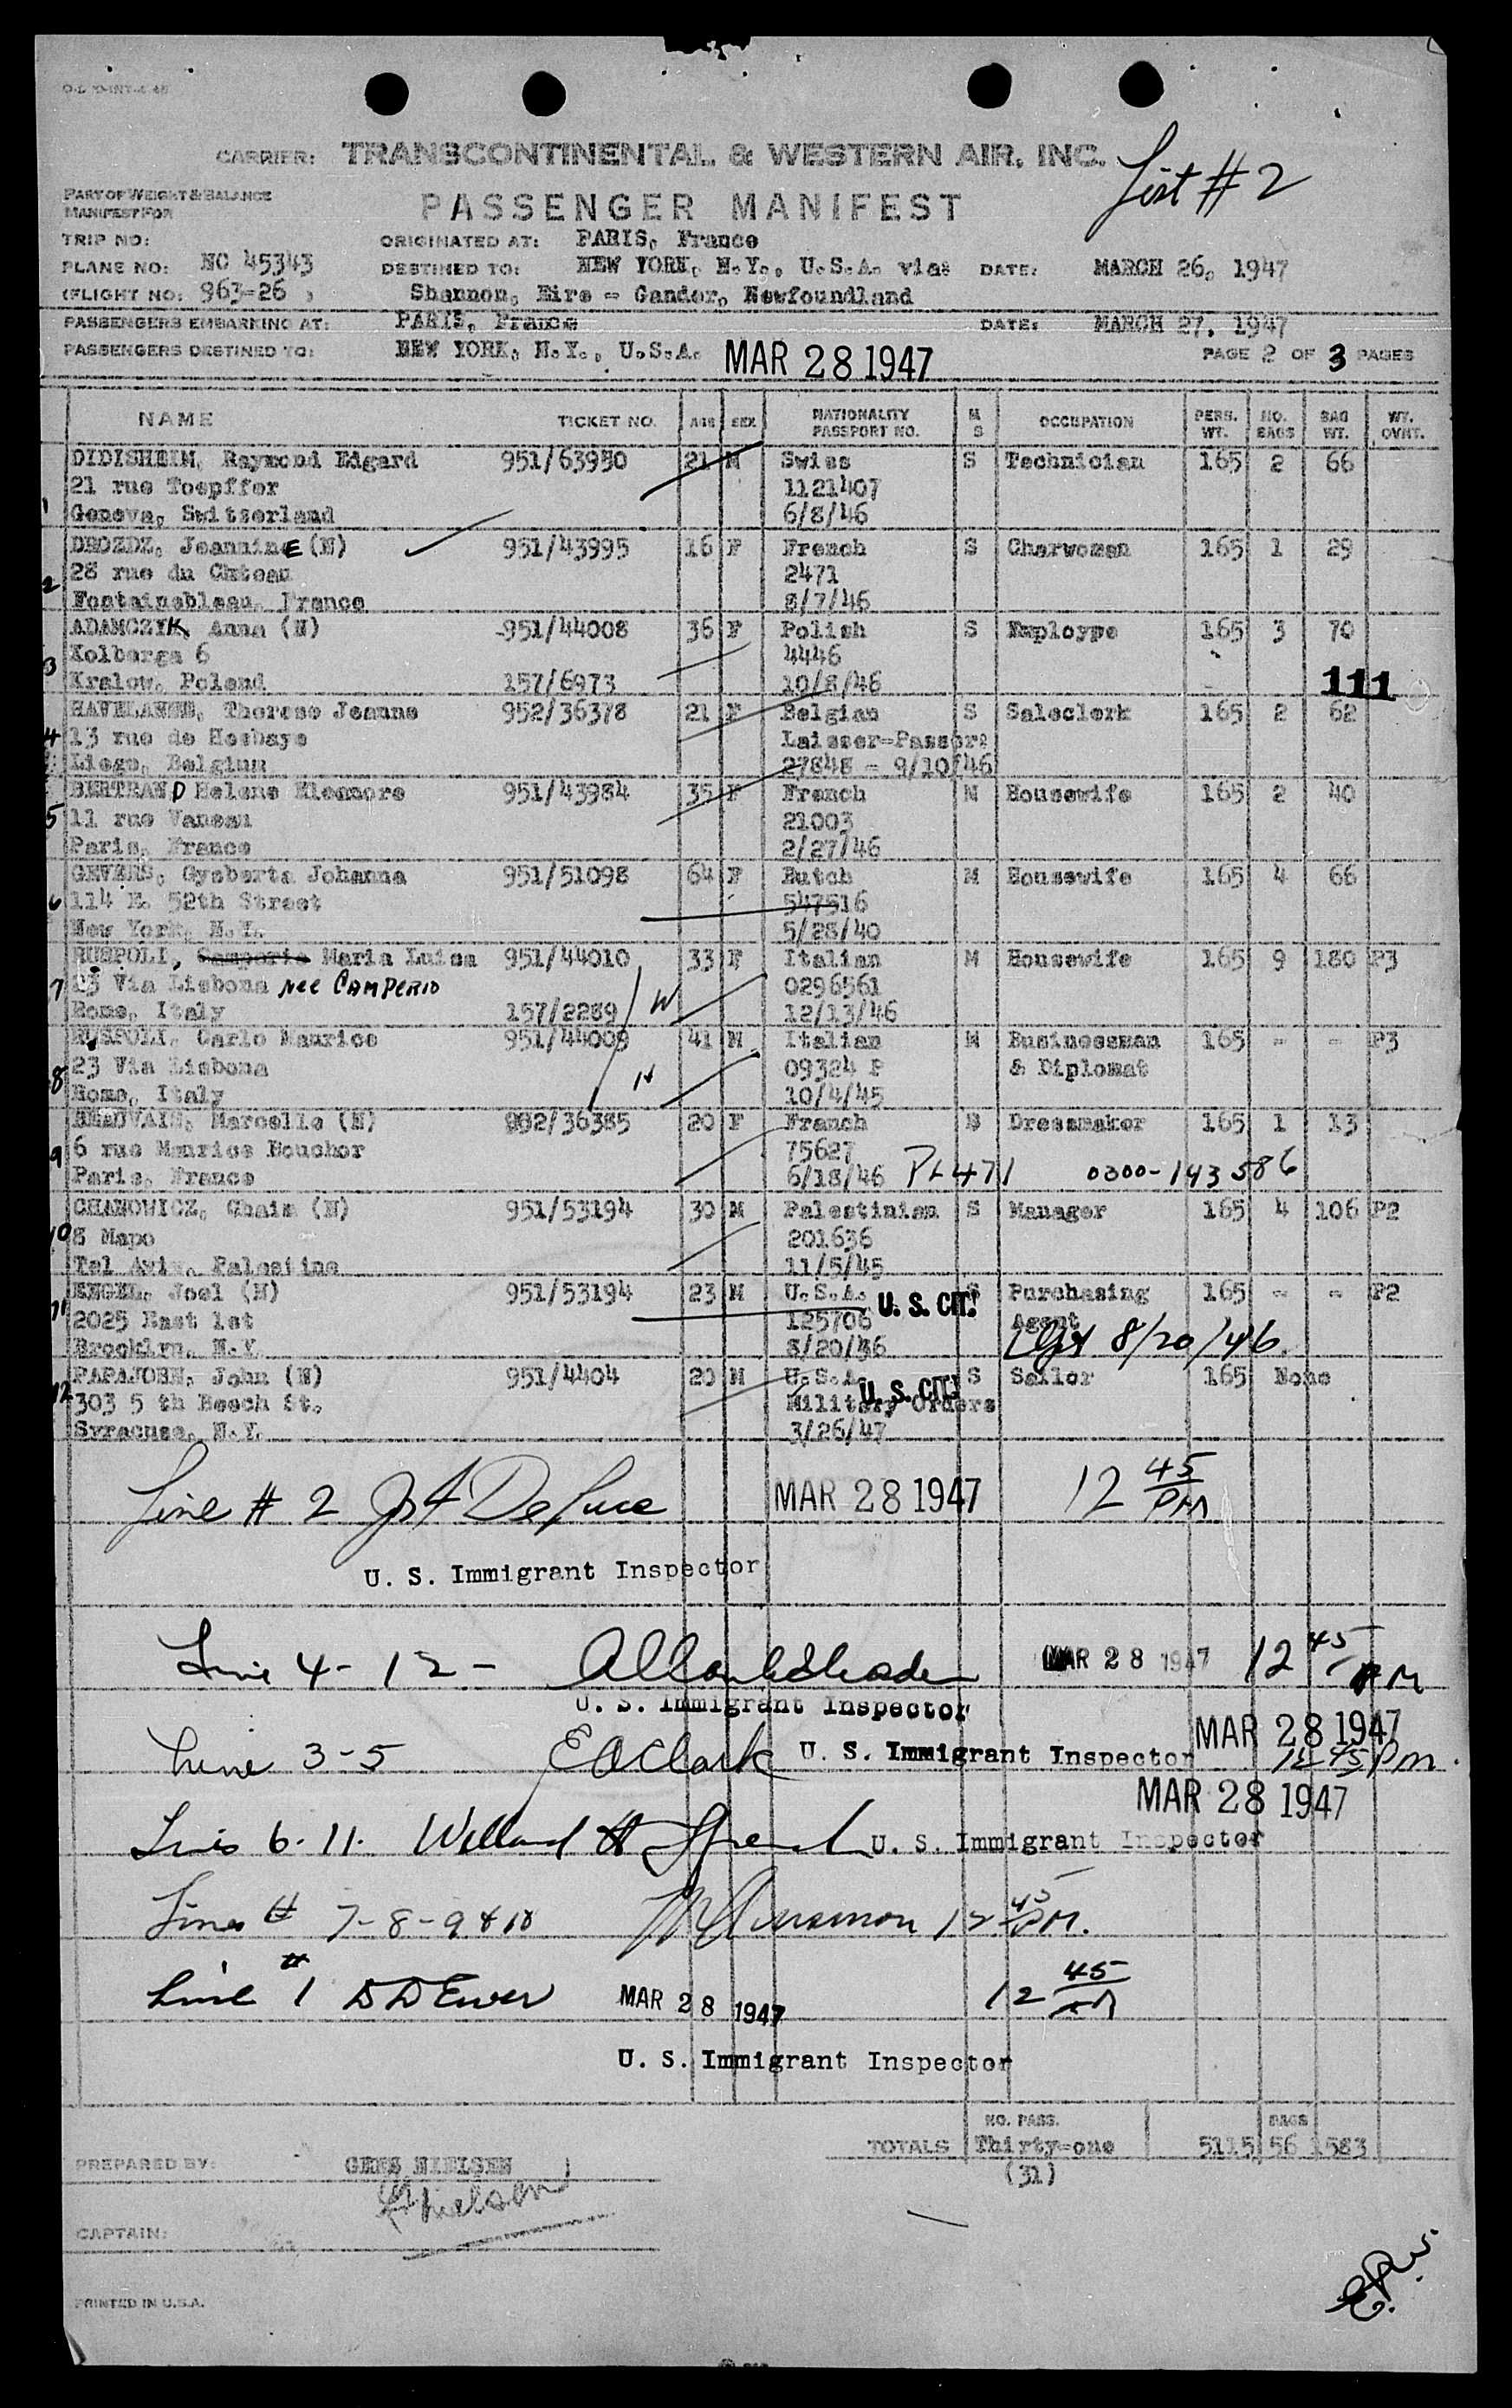 CARRIER: TRANSCONTINENTAL & WESTERN AIR, INC.
List #2
PART OF WEIGHT & BALANCE
MANIFEST FOR
PASSENGER MANIFEST
TRIP NO:
ORIGINATED AT: PARIS, France
PLANE NO: NC 45343
DESTINED TO: NEW YORK, N.Y., U.S.A. via: DATE: MARCH 26, 1947
(FLIGHT NO: 963-26 )
Shannon, Eire - Gander, Newfoundland
PASSENGERS EMBARKING AT: PARIS, France DATE: MARCH 27, 1947
PASSENGERS DESTINED TO: NEW YORK, N.Y., U.S.A. MAR 28 1947 PAGE 2 OF 3 PAGES
NAME TICKET NO. AGE SEX NATIONALITY PASSPORT NO. M S OCCUPATION PERS. WT. NO. BAGS BAG WT. WT. OVHT.
DIDISHEIM, Raymond Edgard 951/63950 21 M Swiss S Technician 165 2 66
21 rue Toepffer 1121407
1 Geneva, Switzerland 6/8/46
DROZDZ, JeanninE (N) 951/43995 16 F French S Charwoman 165 1 29
2 28 rue du Chteau 2471
Fontainebleau, France 8/7/46
ADAMCZYK, Anna (N) 951/44008 36 F Polish S Emploype 165 3 70
3 Kolberga 6 4446
Kralow, Poland 157/6973 10/8/46 111
Therese Jeanne 952/36378 21 F Belgian S Salesclerk 165 2 62
4 13 rue de Hesbaye Laisser-Passer:
Liege, Belgium 27848 - 9/10/46
BERTRAND Helene Eleonore 951/43984 35 F French M Housewife 165 2 40
5 11 rue Vaneau 21003
Paris, France 2/27/46
GEVERS, Gysberta Johanna 951/51098 64 F Dutch M Housewife 165 4 66
6 114 E. 52th Street 547516
New York, N.Y. 5/28/40
RUSPOLI, Camperio Maria Luisa 951/44010 33 F Italian M Housewife 165 9 180 P3
7 23 Via Lisbona nee CAMPERIO 0296561
Rome, Italy 157/2289 W 12/13/46
RUSPOLI, Carlo Maurice 951/44009 41 M Italian M Businessman 165 - - P3
8 23 Via Lisbona 09324 P & Diplomat
Rome, Italy H 10/4/45
BEAUVAIS, Marcelle (N) 952/36385 20 F French S Dressmaker 165 1 13
9 6 rue Maurice Bouchor 75627
Paris, France 6/18/46 PL 471 0300-143586
CHANOWICZ, Chaim (N) 951/53194 30 M Palestinian S Manager 165 4 106 P2
10 8 Mapo 201636
Tel Aviv, Palestine 11/5/45
ENGEL, Joel (N) 951/53194 23 M U.S.A. U. S. CIT. S Purchasing 165 - - P2
11 2025 East 1st 125706 Agent
Brooklyn, N.Y. 8/20/46 8/20/46
PAPAJOHN, John (N) 951/4404 20 M U.S.A. U. S. CIT. S Sailor 165 None
12 303 5 th Beech St. Military Orders
Syracuse, N.Y. 3/26/47
Line # 2 MAR 28 1947 12 45 PM
U. S. Immigrant Inspector
Line 4-12- MAR 28 1947 12 45 PM
U. S. Immigrant Inspector
MAR 28 1947
Line 3-5 E A Clark U. S. Immigrant Inspector 12 45 PM.
MAR 28 1947
Lines 6-11. U. S. Immigrant Inspector
Lines # 7-8-9 & 10 12 45 PM.
Line # 1 MAR 28 1947 12 45
U. S. Immigrant Inspector
NO. PASS. BAGS
TOTALS Thirty-one 5115 56 1583
(31)
PREPARED BY: NIELSEN
Nielsen
CAPTAIN:
PRINTED IN U.S.A.